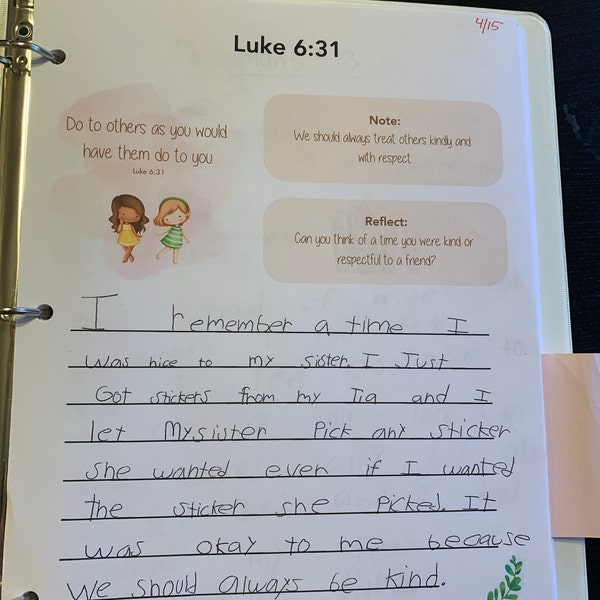 4/15
Luke 6:31
Do to others as you would
have them do to you
Luke 6:31
Note:
We should always treat others kindly and
with respect
Reflect:
Can you think of a time you were kind or
respectful to a friend?
I remember a time I
was nice to my sister. I Just
Got stickers from my Tia and I
let My sister Pick any sticker
she wanted even if I wanted
the sticker she Picked. It
was okay to me because
we should always be kind.